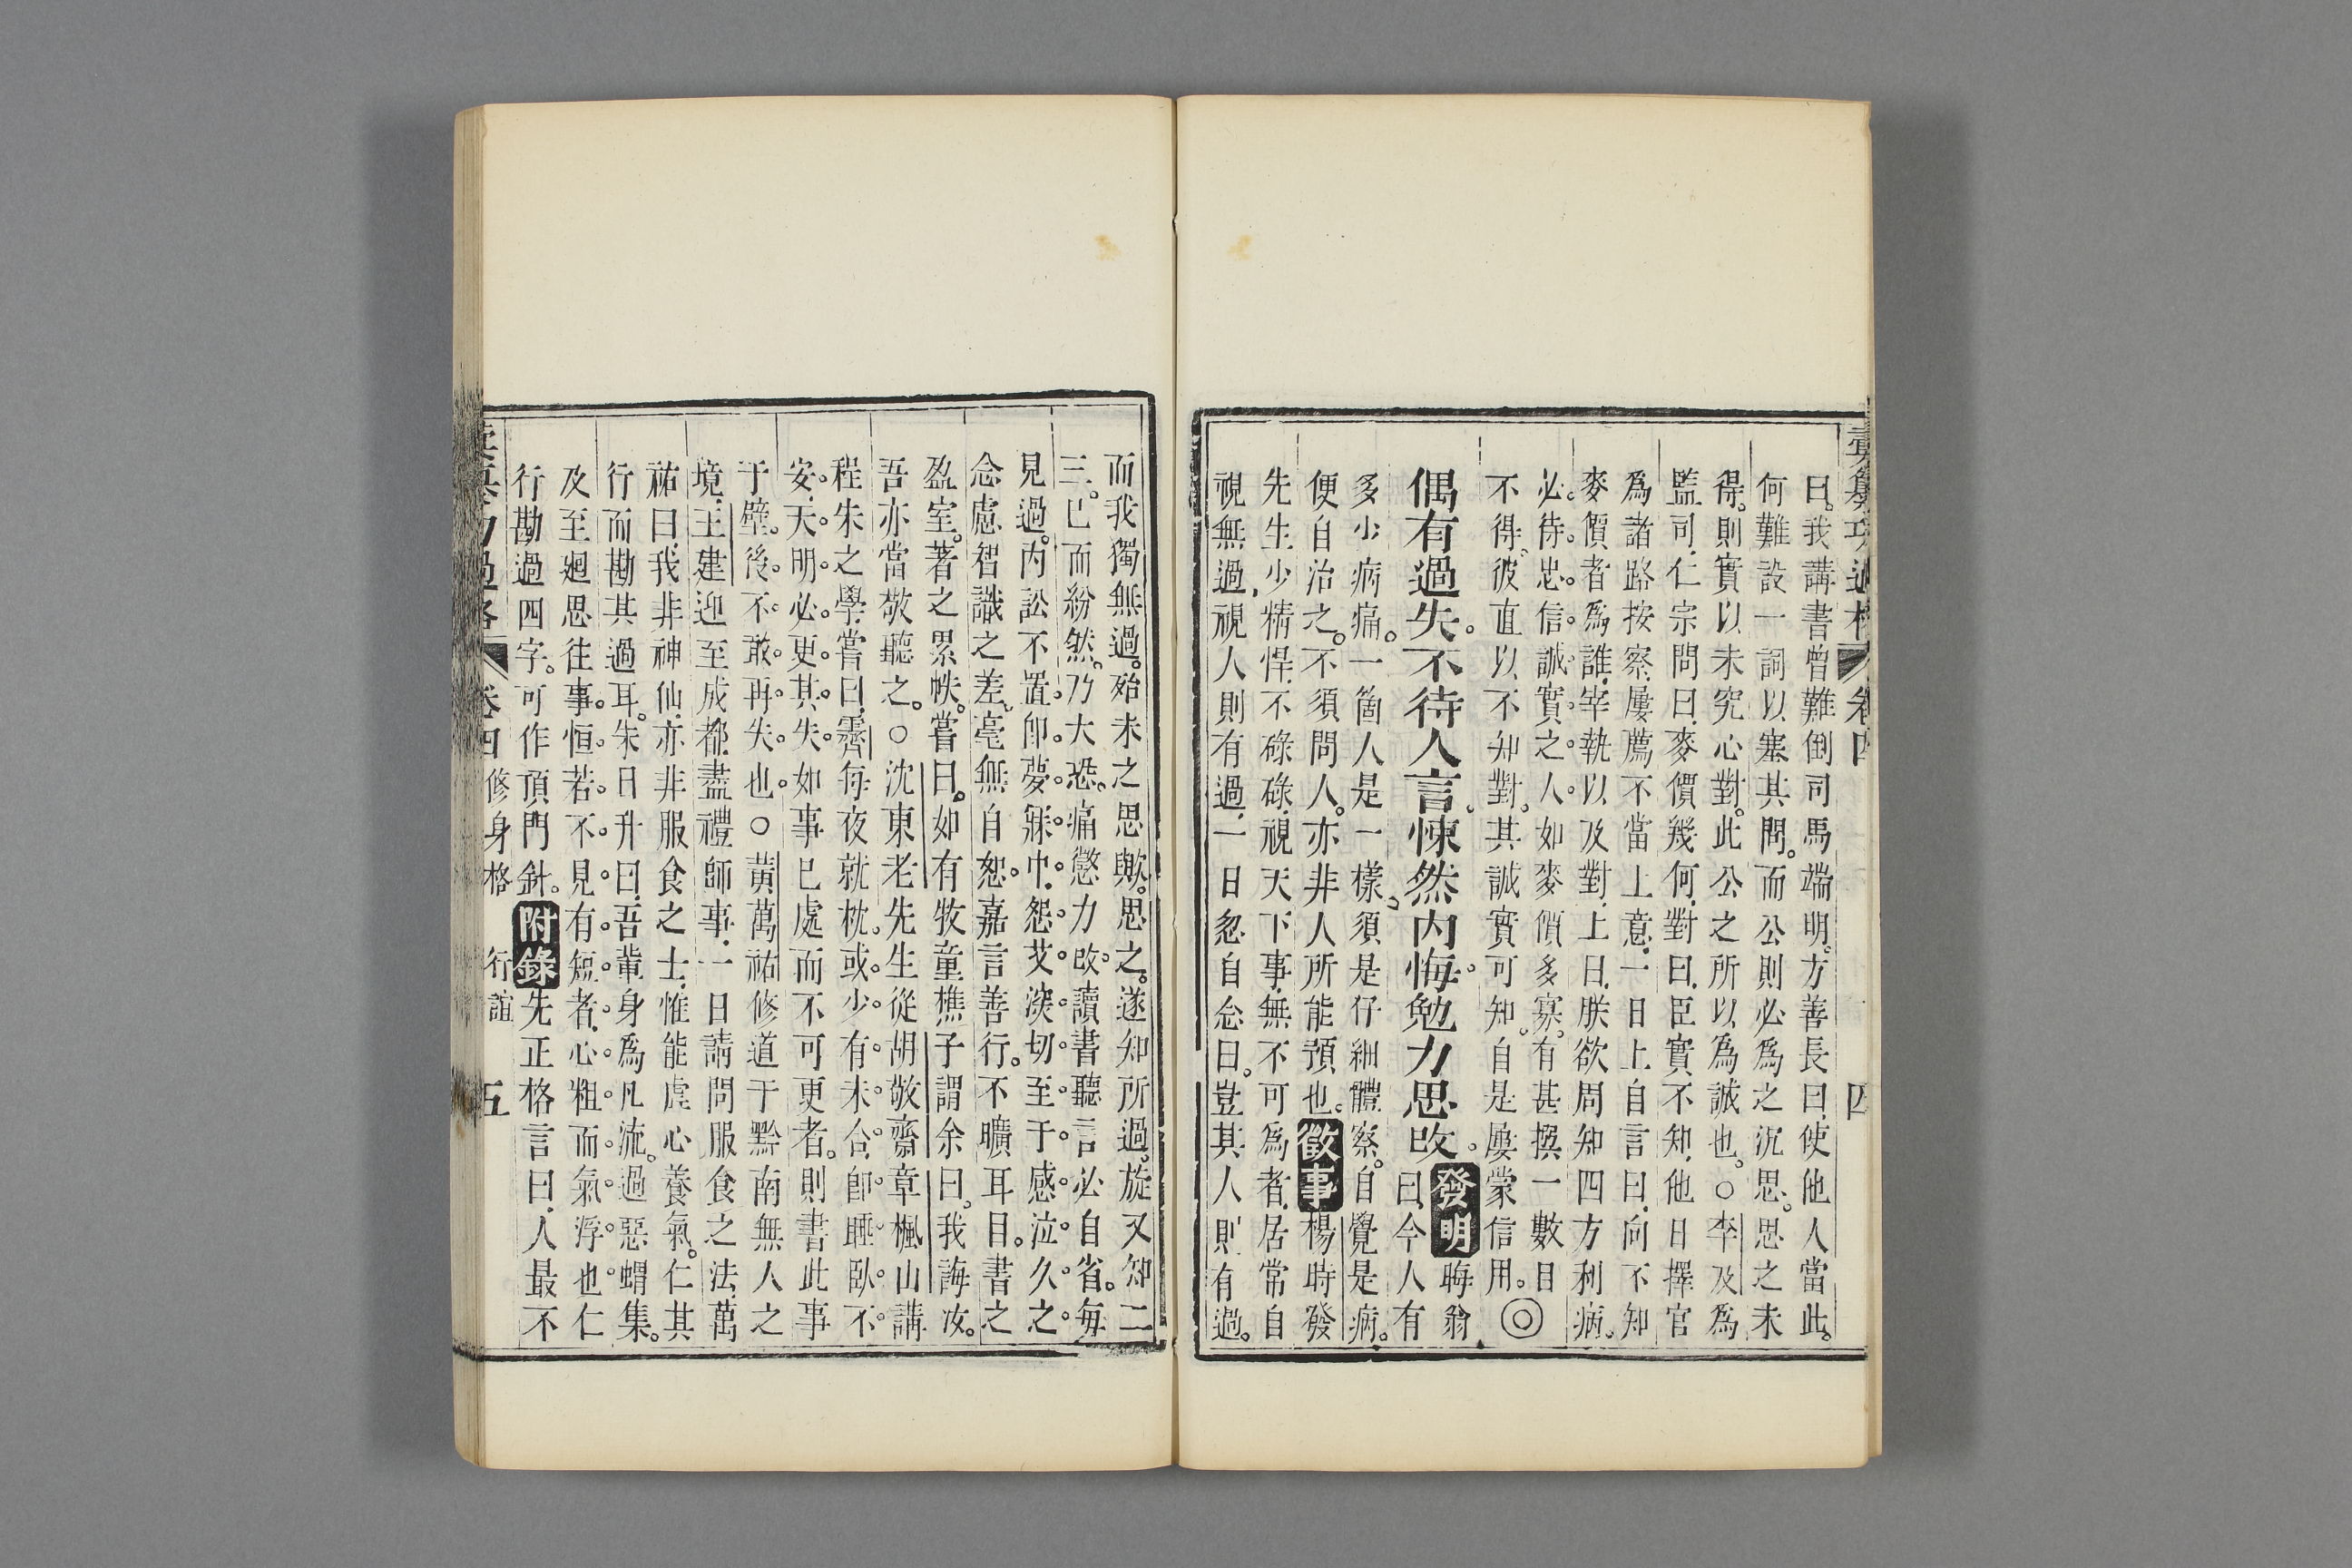 彙纂功過格 卷四 四
曰。我講書曾難倒司馬端明。方善長曰使他人當此。
何難設一詞以塞其問。而公則必爲之沉思。思之未
得。則實以未究心對。此公之所以爲誠也。○李及爲
監司仁宗問曰麥價幾何對曰臣實不知他日擇官
爲諸路按察屢薦不當上意一日上自言曰向不知
麥價者爲誰宰執以及對上曰朕欲周知四方利病。
必待忠信誠實之人如麥價多寡。有甚撰一數目
不得。彼直以不知對。其誠實可知。自是屢蒙信用。◎
偶有過失。不待人言。悚然內悔。勉力思改。發明晦翁
曰今人有
多少病痛。一箇人是一樣。須是仔細體察。自覺是病。
便自治之。不須問人。亦非人所能預也。徵事楊時發
先生少精悍不碌碌視天下事無不可爲者居常自
視無過視人則有過一日忽自念曰。豈其人則有過。
而我獨無過。殆未之思歟。思之。遂知所過。旋又知二
三。已而紛然。乃大恐。痛懲力改。讀書聽言必自省。每
見過。內訟不置。卽夢寐中怨艾深切至于感泣久之
念慮智識之差。毫無自恕。嘉言善行。不曠耳目。書之
盈室。著之累帙。嘗曰。如有牧童樵子謂余曰。我誨汝。
吾亦當敬聽之。○沈東老先生從胡敬齋章楓山講
程朱之學嘗曰霽每夜就枕或少有未合卽睡臥不
安天明必更其失如事已處而不可更者。則書此事
于壁後不敢再失也○黃萬祐修道于黔南無人之
境王建迎至成都盡禮師事一日請問服食之法萬
祐曰我非神仙亦非服食之士惟能虛心養氣。仁其
行而勘其過耳。朱日升曰吾輩身爲凡流。過惡蝟集。
及至廻思往事恒若不見有短者心粗而氣浮也仁
行勘過四字。可作頂門針。附錄先正格言曰人最不
彙纂功過格 卷四 修身格 行誼 五